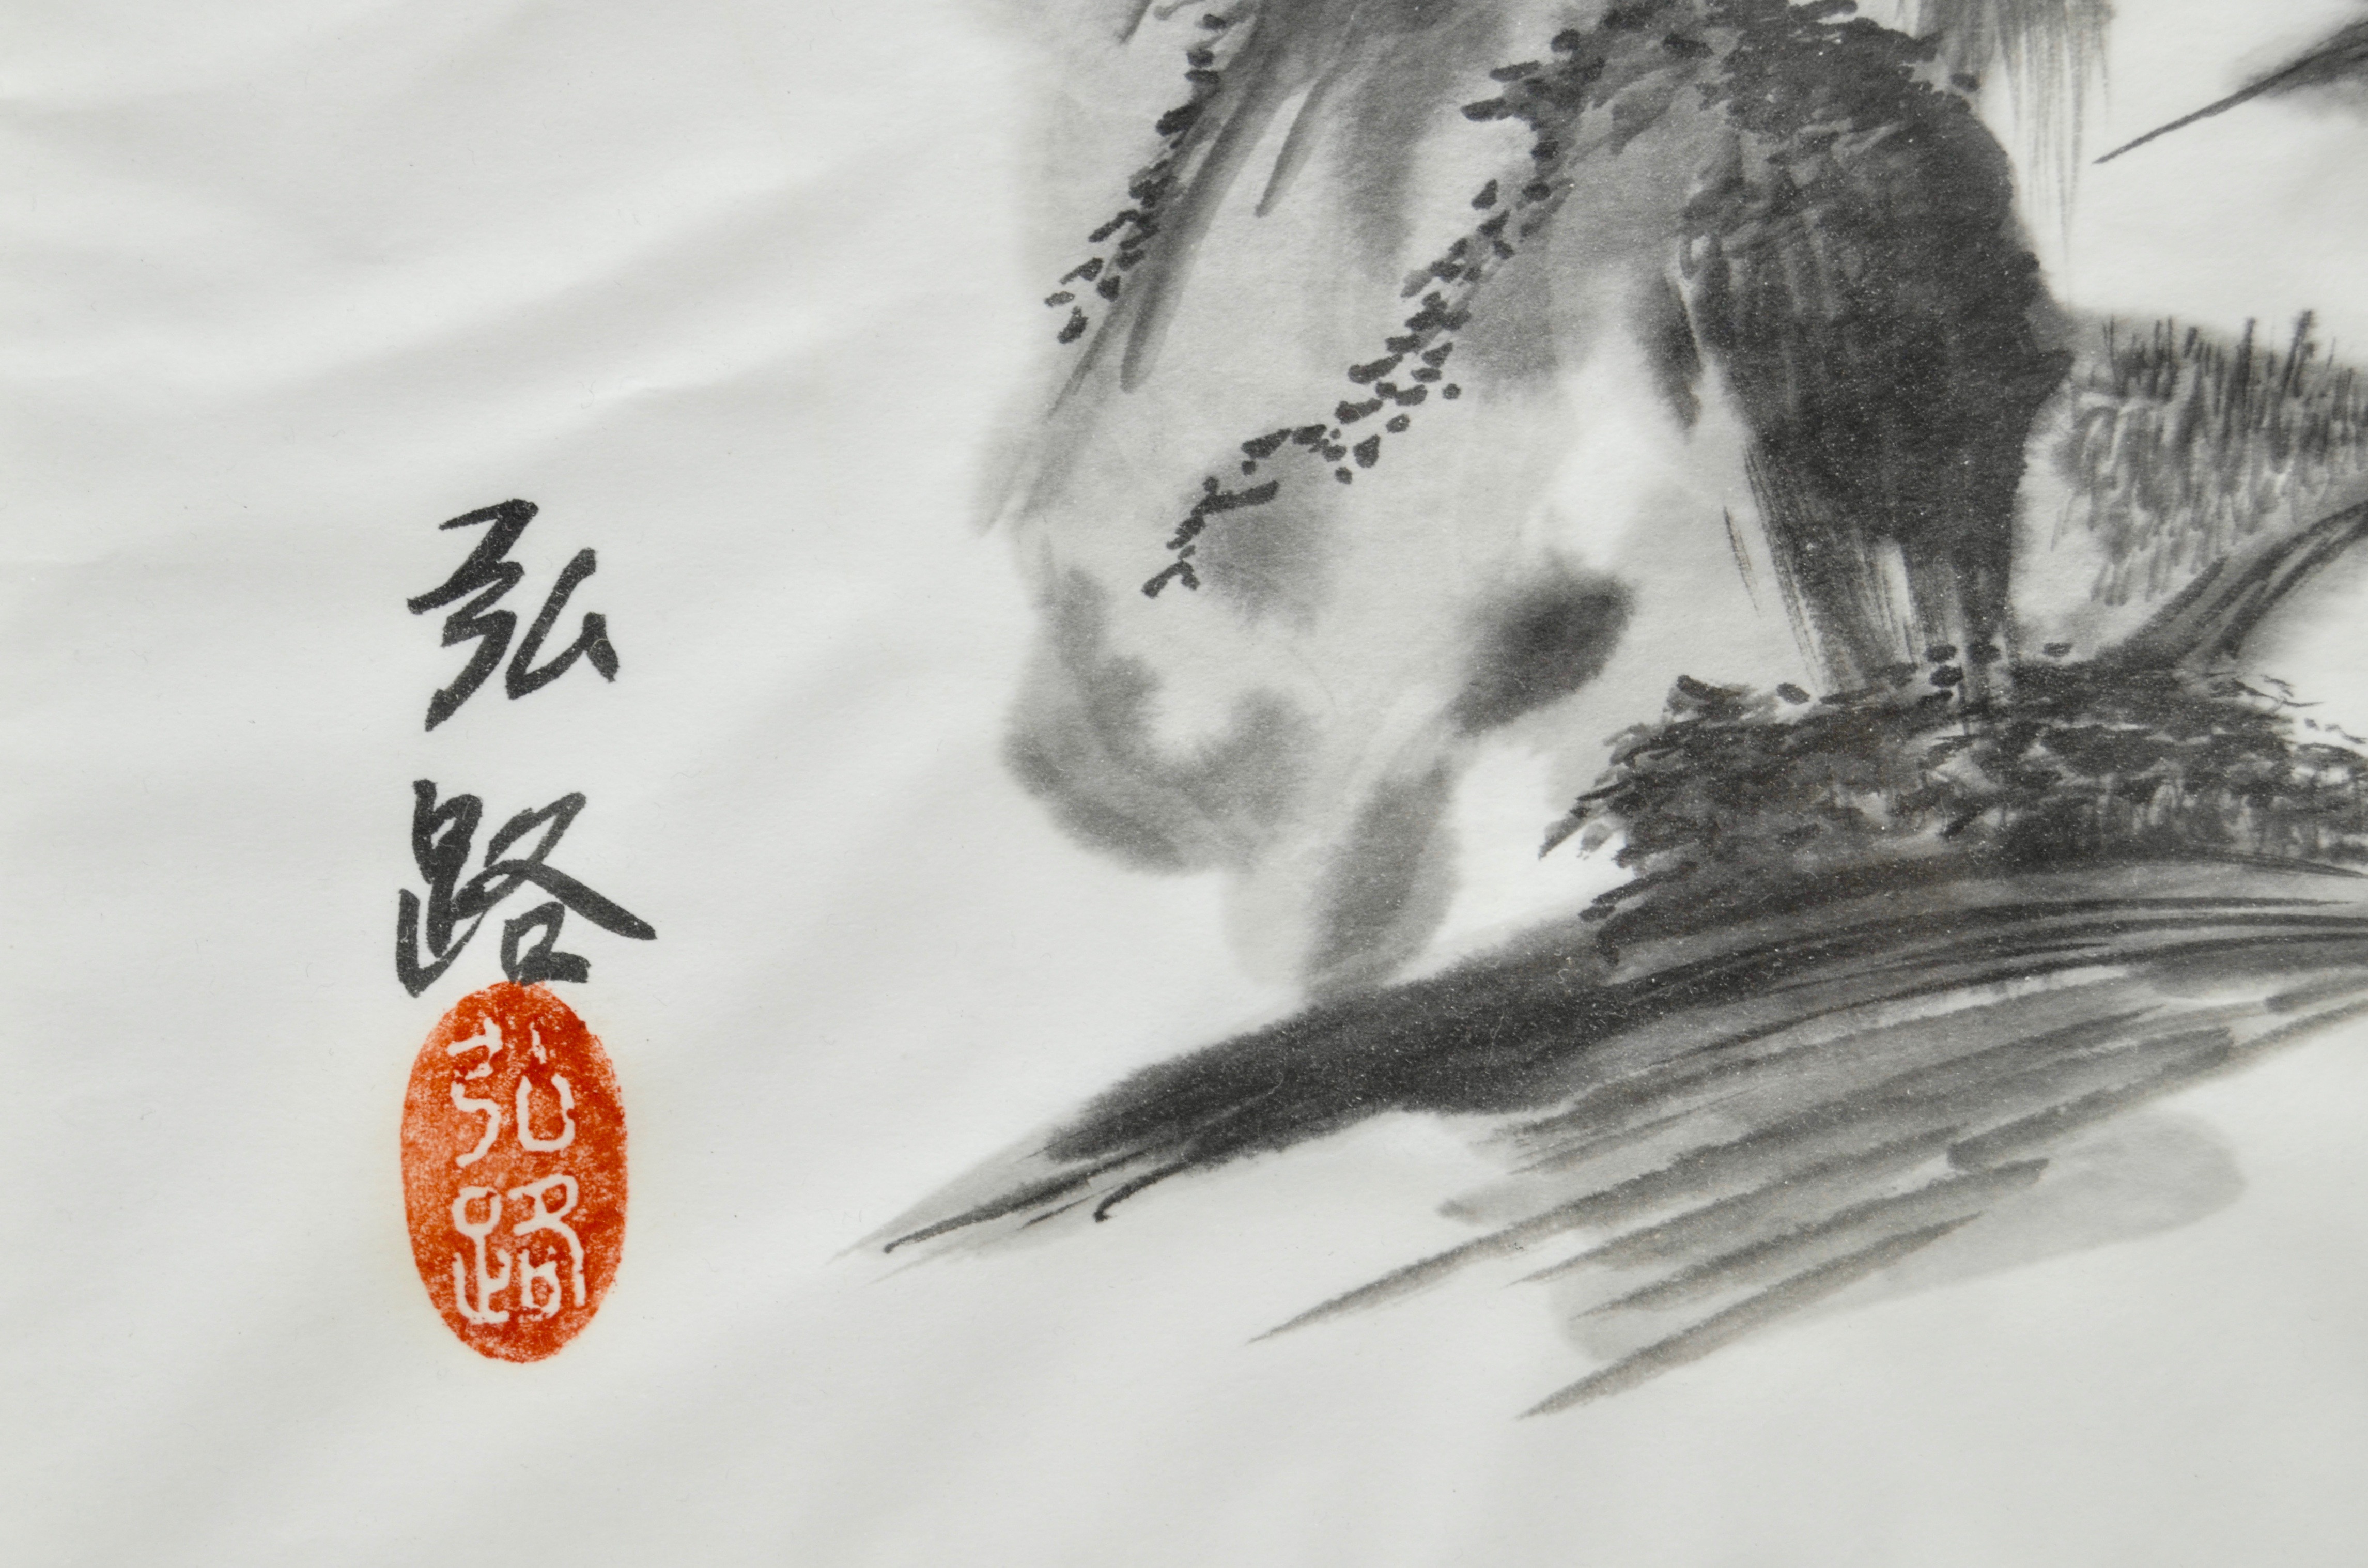 弘路
弘路